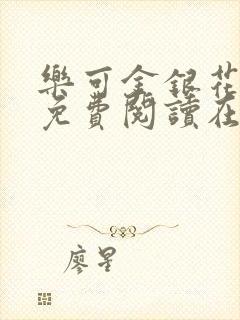 樂可金銀花
免費閱讀在
廖星